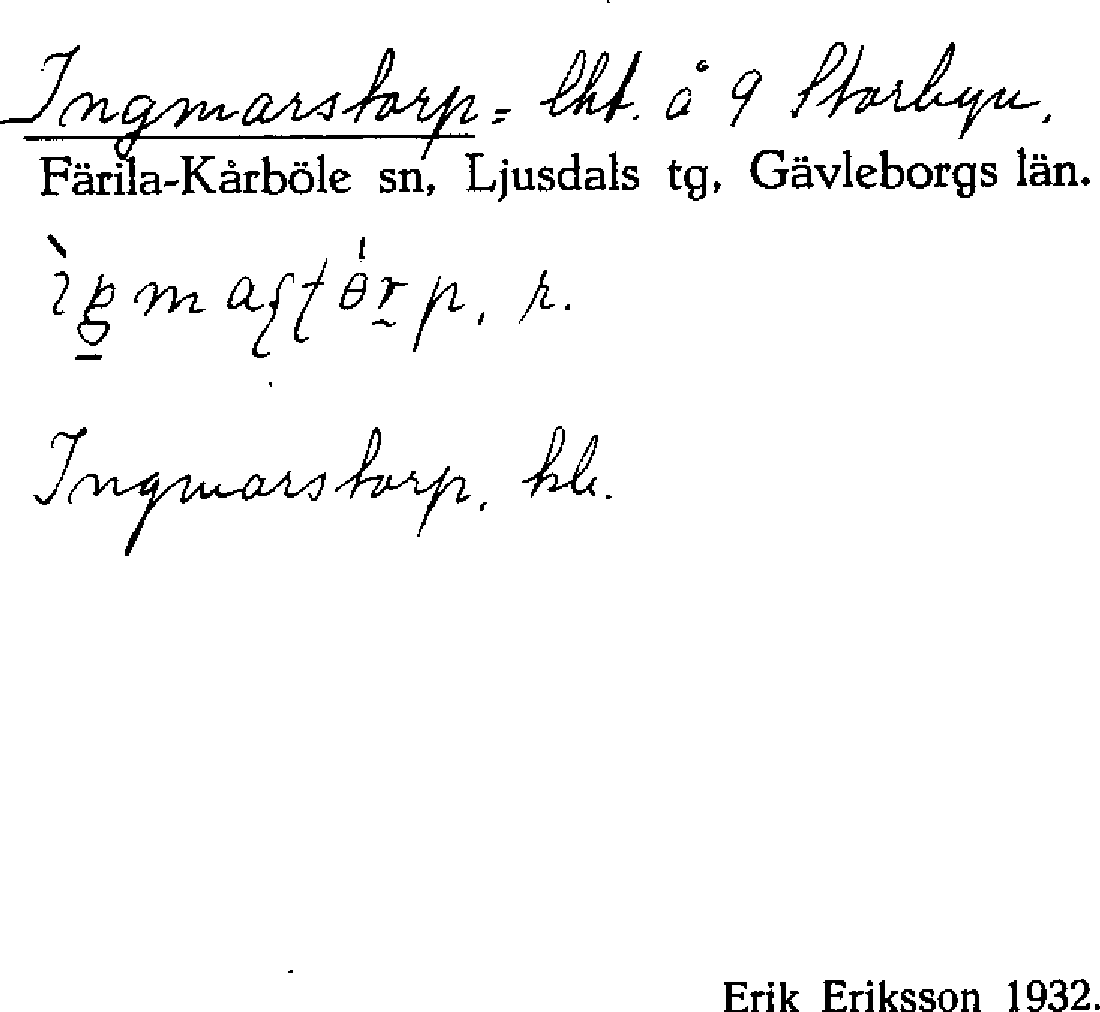 Ingmarstorp = lht. å 9 Storbyn.
Färila-Kårböle sn, Ljusdals tg, Gävleborgs län.
Ingmarstorp, hk.
Erik Eriksson 1932.